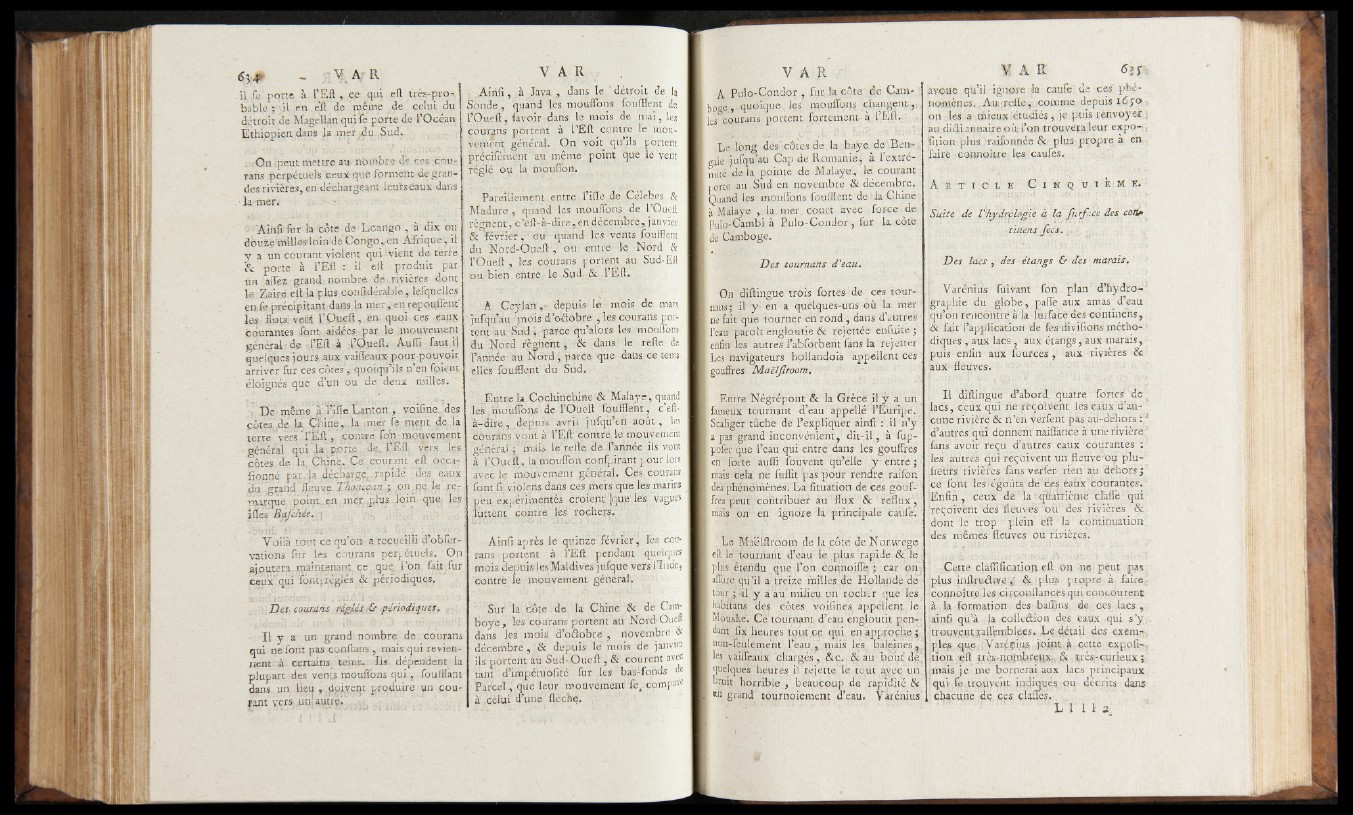 634 - V A R
il se porte à l'Est, ce qui est très-pro-
bable ; il en est de même de celui du
détroit de Magellan qui se porte de l'Océan
Ethiopien dans la mer du Sud.
On peut mettre au nombre de ces cou-
rans perpétuels ceux que forment de gran-
des rivières, en déchargeant leurs eaux dans
la mer.
Ainsi sur la côte de Loango , à dix ou
douze milles loin de Congo, en Afrique, il
y a un courant violent qui vient de terre
& porte à l'Est : il est produit par
un assez grand nombre de rivières dont
le Zaire est la plus considérable, lesquelles
en se précipitant dans la mer, en repoussent
les flots vers l'Ouest, en quoi ces eaux
courantes sont aidées par le mouvement
général de l'Est à l'Ouest. Aussi faut il
quelques jours aux vaisseaux pour pouvoir
arriver sur ces côtes, quoiqu'ils n'en soient
éloignés que d'un ou de deux milles.
De même à l'isle Lanton, voisine des
côtes de la Chine, la mer se meut de la
terre vers l'Est, contre son mouvement
général qui la porte de l'Est vers les
côtes de la Chine. Ce courant est occa-
sionné par la décharge rapide des eaux
du grand fleuve Thoncoan ; on ne le re-
marque point en mer plus loin que les
isles Baschée.
Voilà tout ce qu'on a recueilli d'obser-
vations sur les courans perpétuels. On
ajoutera maintenant ce que l'on sait sur
ceux qui sont réglés & périodiques.
Des courans réglés & périodiques.
Il y a un grand nombre de courans
qui ne sont pas constans, mais qui revien-
nent à certains tems. Ils dépendent la
plupart des vents moussons qui, soufflant
dans un lieu, doivent produire un cou-
rant vers un autre.
V A R
Ainsi, à Java, dans le détroit de la
Sonde, quand les moussons soufflent de
l'Ouest, savoir dans le mois de mai, les
courans portent à l'Est contre le mou-
vement général. On voit qu'ils portent
précisément au même point que le vent
réglé ou la mousson.
Pareillement entre l'isle de Célebes &
Madure, quand les moussons de l'Ouest
règnent, c'est-à-dire, en décembre, janvier
& février, ou quand les vents soufflent
du Nord-Ouest, ou entre le Nord &
l'Ouest, les courans portent au Sud-Est
ou bien entre le Sud & l'Est.
A Ceylan, depuis le mois de mars
jusqu'au mois d'octobre, les courans por-
tent au Sud, parce qu'alors les moussons
du Nord règnent, & dans le reste de
l'année au Nord, parce que dans ce tems
elles soufflent du Sud.
Entre la Cochinchine & Malaye, quand
les moussons de l'Ouest soufflent, c'est-
à-dire, depuis avril jusqu'en août, les
courans vont à l'Est contre le mouvement
général ; mais le reste de l'année ils vont
à l'Ouest, la mousson conspirant pour lors
avec le mouvement général. Ces courans
sont si violens dans ces mers que les marins
peu expérimentés croient que les vagues
luttent contre les rochers.
Ainsi après le quinze février, les cou-
rans portent à l'Est pendant quelques
mois depuis les Maldives jusque vers l'Inde,
contre le mouvement général.
Sur la côte de la Chine & de Cam-
boye, les courans portent au Nord-Ouest
dans les mois d'octobre, novembre &
décembre, & depuis le mois de janvier
ils portent au Sud-Ouest, & courent avec
tant d'impétuosité sur les bas-fonds de
Parcel, que leur mouvement se comparé
à celui d'une flèche.
V A R
A Pulo-Condor, sur la côte de Cam-
boge, quoique les moussons changent,
les courans portent fortement à l'Est.
Le long des côtes de la baye de Ben-
gale jusqu'au Cap de Romanie, à l'extré-
mité de la pointe de Malaye, le courant
porte au Sud en novembre & décembre.
Quand les moussons soufflent de la Chine
à Malaye, la mer court avec force de
Pulo-Cambi à Pulo-Condor, sur la côte
de Camboge.
Des tournans d'eau.
On distingue trois sortes de ces tour-
nans; il y en a quelques-uns où la mer
ne fait que tourner en rond, dans d'autres
l'eau paroît engloutie & rejettée ensuite ;
enfin les autres l'absorbent sans la rejetter
Les navigateurs hollandois appellent ces
gouffres Maëlstroom.
Entre Négrépont & la Grèce il y a un
fameux tournant d'eau appellé l'Euripe.
Scaliger tâche de l'expliquer ainsi : il n'y
a pas grand inconvénient, dit-il, à sup-
poser que l'eau qui entre dans les gouffres
en sorte aussi souvent qu'elle y entre ;
mais cela ne suffit pas pour rendre raison
des phénomènes. La situation de ces gouf-
fres peut contribuer au flux & reflux,
mais on en ignore la principale cause.
Le Maëlstroom de la côte de Norwege
est le tournant d'eau le plus rapide & le
plus étendu que l'on connoisse ; car on
assure qu'il a treize milles de Hollande de
tour ; il y a au milieu un rocher que les
habitans des côtes voisines appellent le
Mouske. Ce tournant d'eau engloutit pen-
dant six heures tout ce qui en approche ;
non-seulement l'eau, mais les baleines,
les vaisseaux chargés, &c. & au bout de
quelques heures il rejette le tout avec un
bruit horrible, beaucoup de rapidité &
un grand tournoiement d'eau. Varénius
V A R 635
avoue qu'il ignore la cause de ces phé-
nomènes. Au reste, comme depuis 1650
on les a mieux étudiés, je puis renvoyer
au dictionnaire où l'on trouvera leur expo-
sition plus raisonnée & plus propre à en
faire connoître les causes.
A R T I C L E C I N Q U I È M E.
Suite de l'hydrologie à la surface des con-
tinens secs.
Des lacs, des étangs & des marais.
Varénius suivant son plan d'hydro-
graphie du globe, passe aux amas d'eau
qu'on rencontre à la surface des continens,
& fait l'application de ses divisions métho-
diques, aux lacs, aux étangs, aux marais,
puis enfin aux sources, aux rivières &
aux fleuves.
Il distingue d'abord quatre sortes de
lacs, ceux qui ne reçoivent les eaux d'au-
cune rivière & n'en versent pas au-dehors :
d'autres qui donnent naissance à une rivière
sans avoir reçu d'autres eaux courantes :
les autres qui reçoivent un fleuve ou plu-
sieurs rivières sans verser rien au dehors ;
ce sont les égouts de ces eaux courantes.
Enfin, ceux de la quatrième classe qui
reçoivent des fleuves ou des rivières &
dont le trop plein est la continuation
des mêmes fleuves ou rivières.
Cette classification est on ne peut pas
plus instructive, & plus propre à faire
connoître les circonstances qui concourent
à la formation des bassins de ces lacs,
ainsi qu'à la collection des eaux qui s'y
trouvent rassemblées. Le détail des exem-
ples que Varénius joint à cette exposi-
tion est très-nombreux & très-curieux ;
mais je me bornerai aux lacs principaux
qui se trouvent indiqués ou décrits dans
chacune de ces classes.
L l l l 2